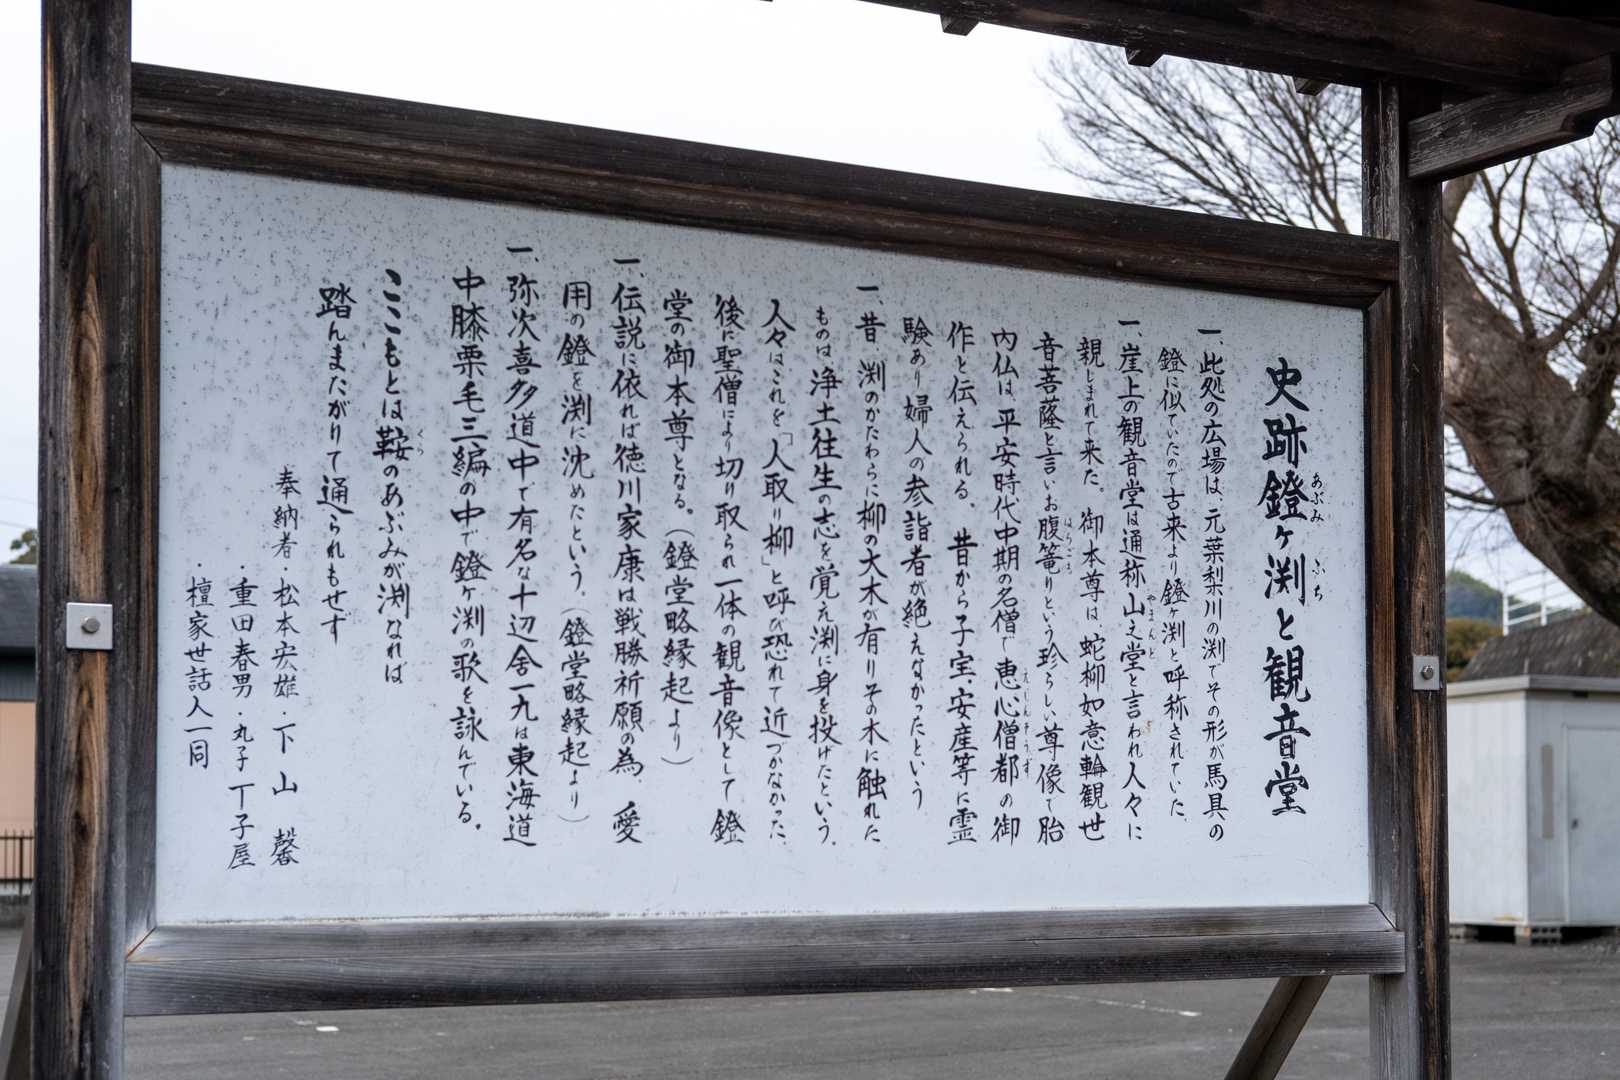 史跡鐙ヶ渕と観音堂
あぶみ
ふち
一、此処の広場は、元葉梨川の渕でその形が馬具の
鐙に似ていたので古来より鐙ヶ渕と呼称されていた。
一、崖上の観音堂は通称山之堂と言われ人々に
やまんど
親しまれて来た。御本尊は、蛇柳如意輪観世
音菩薩と言いお腹篭りという珍らしい尊像で胎
はらごも
内仏は、平安時代中期の名僧で恵心僧都の御
えしんそうず
作と伝えられる。昔から子宝、安産等に霊
験あり婦人の参詣者が絶えなかったという
一、昔 渕のかたわらに柳の大木が有りその木に触れた
ものは浄土往生の志を覚え渕に身を投げたという。
人々はこれを「人取り柳」と呼び恐れて近づかなかった。
後に聖僧により切り取られ一体の観音像として鐙
堂の御本尊となる。(鐙堂略縁起より)
一、伝説に依れば徳川家康は戦勝祈願の為、愛
用の鐙を渕に沈めたという。(鐙堂略縁起より)
一、弥次喜多道中で有名な十辺舎一九は東海道
中膝栗毛三編の中で鐙ヶ渕の歌を詠んでいる。
ここもとは鞍のあぶみが渕なれば
くら
踏んまたがりて通られもせず
奉納者・松本宏雄・下山 馨
・重田春男・丸子丁子屋
・檀家世話人一同